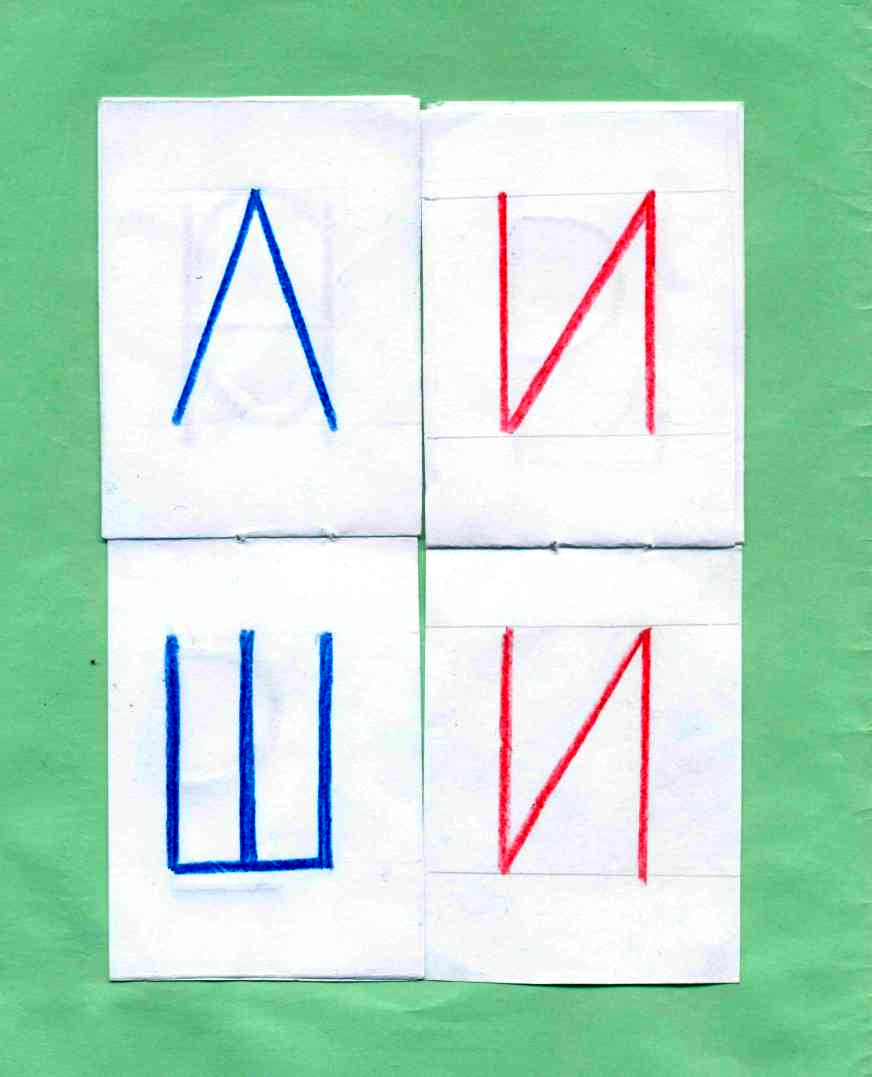 ЛИ
ШИ